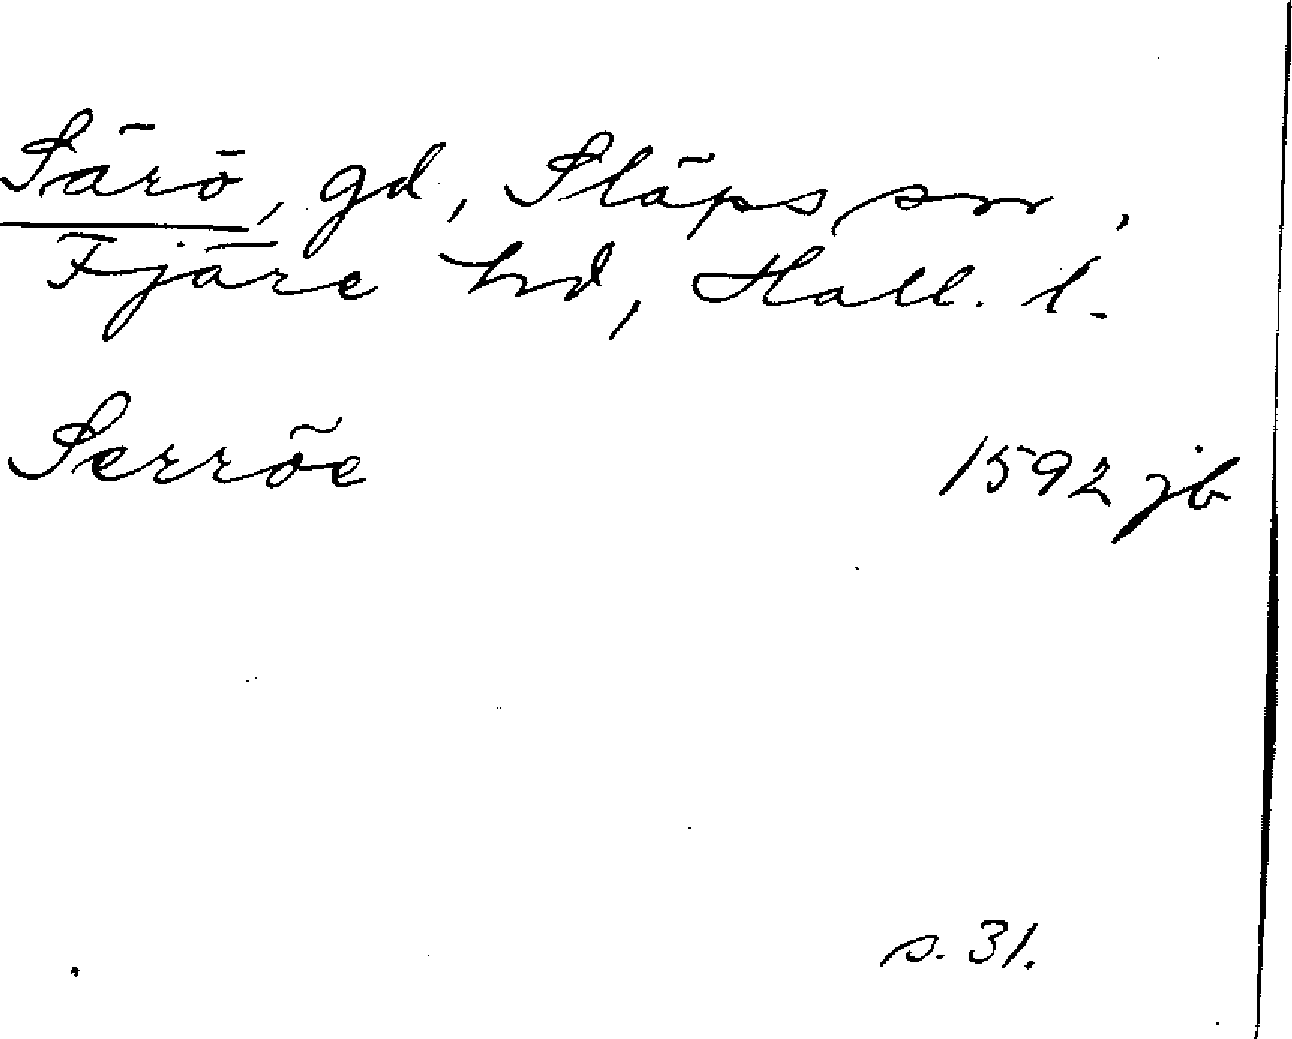 Särö, gd, Släps sn,
Fjäre hd, Hall. l.
Serröe 1592 jb
s. 31.